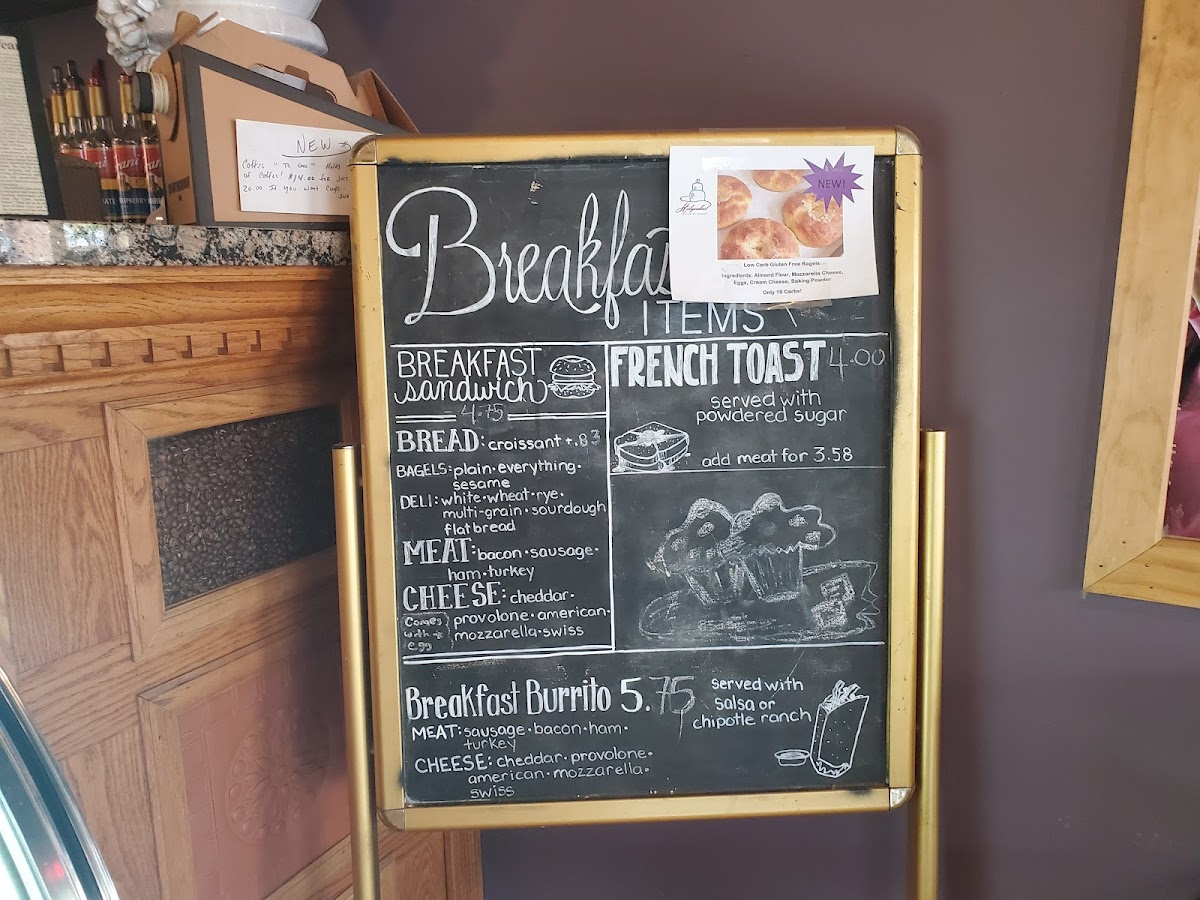 NEW
Coffee "To Go" Holds
of coffee! $14.00 for just
20.00 If you want cups
NEW!
Low Carb Gluten Free Bagels
Ingredients: Almond Flour, Mozzarella Cheese,
Eggs, Cream Cheese, Baking Powder
Only 18 Carbs!
Breakfa
ITEMS
BREAKFAST
sandwich
4.75
BREAD: croissant +.83
BAGELS: plain • everything •
sesame
DELI: white • wheat • rye •
multi-grain • sourdough
flatbread
MEAT: bacon • sausage •
ham • turkey
CHEESE: cheddar •
provolone • american •
mozzarella • swiss
Comes
with
egg
FRENCH TOAST 4.00
served with
powdered sugar
add meat for 3.58
Breakfast Burrito 5.75
served with
salsa or
chipotle ranch
MEAT: sausage • bacon • ham •
turkey
CHEESE: cheddar • provolone •
american • mozzarella •
swiss